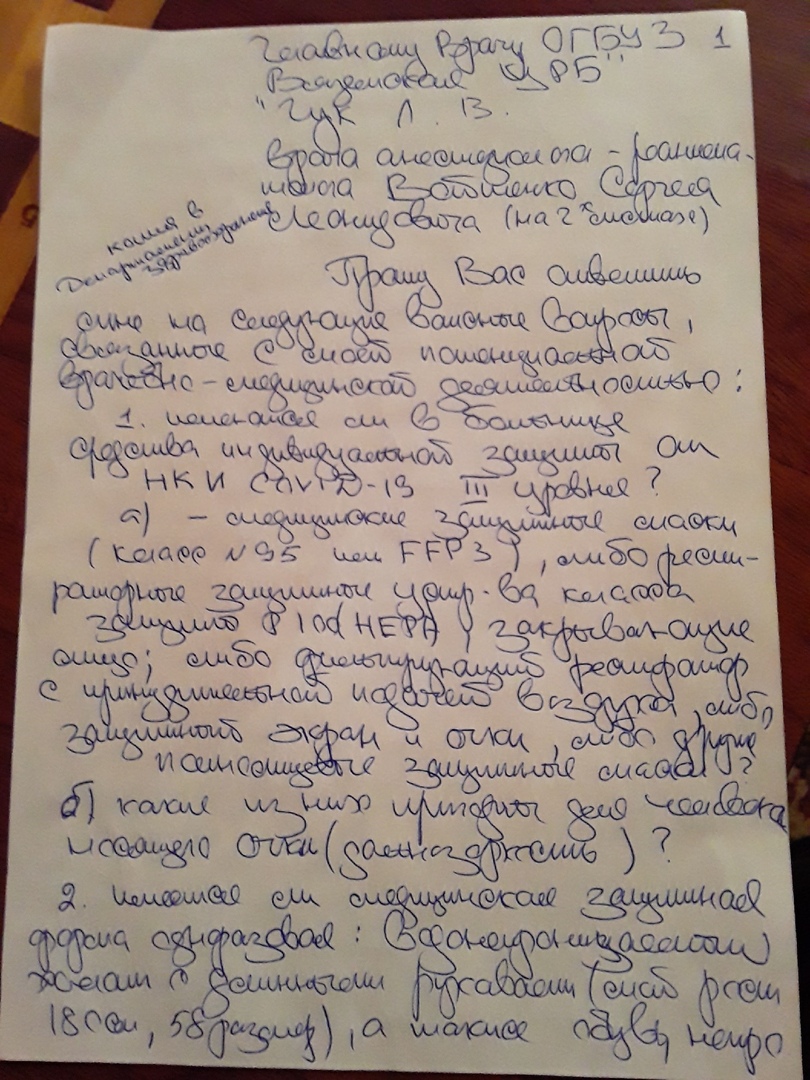 Главному Врачу ОГБУЗ 1
Вяземская ЦРБ"
"Гук Л. В.
врача анестезиолога - реанима-
толога Сергея
Леонидовича (на 2х листах)
копия в
Департамент
здравоохранения
Прошу Вас ответить
мне на следующие важные вопросы,
связанные с моей потенциальной
врачебно-медицинской деятельностью:
1. имеются ли в больнице
средства индивидуальной защиты от
НКИ COVID-19 III уровня?
а) - медицинские защитные маски
(класс N95 или FFP3), либо респи-
раторные защитные устр-ва класса
защиты P100(HEPA), закрывающие
лицо; либо фильтрующий респиратор
с принудительной подачей воздуха, либо
защитный экран и очки, либо другие
полнолицевые защитные маски?
б) какие из них пригодны для человека
носящего очки (дальнозоркость)?
2. имеется ли медицинская защитная
форма одноразовая: (водонепроницаемый)
халат с длинными рукавами (мой рост
58 размер), а также обувь непро